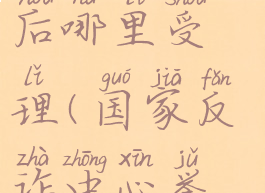 后哪里受
lǐ guó jiā fǎn
理(国家反
zhà zhōng xīn jǔ
诈中心举